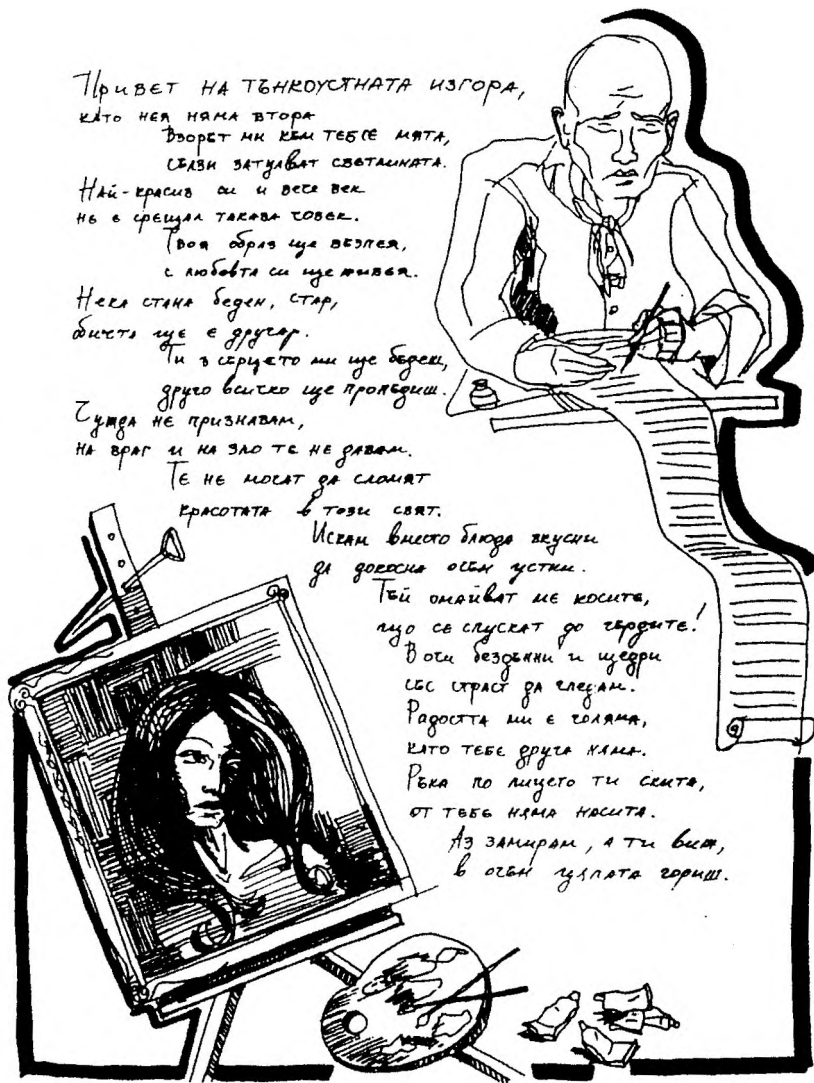 Привет на тънкоустната изгора,
като нея няма втора
Взорът ми към тебе се мята,
сълзи затулват светлината.
Най-красив си и вече век
не е срещал такава човек.
Твоя образ ще възпея,
с любовта си ще живея.
Нека стана беден, стар,
обичта ще е другар.
Ти в сърцето ми ще бдеш,
друго всичко ще пропъдиш.
Чужда не признавам,
на враг и на зло те не давам.
Те не могат да сломят
красотата в този свят.
Искам вместо блюда вкусни
да докосна огън устни.
Тъй омайват ме косите,
що се спускат до гърдите!
В очи бездънни и щедри
със страст да гледам.
Радостта ми е голяма,
като тебе друга няма.
Ръка по лицето ти скита,
от тебе няма насита.
Аз замирам, а ти виж,
в огън цялата гориш.